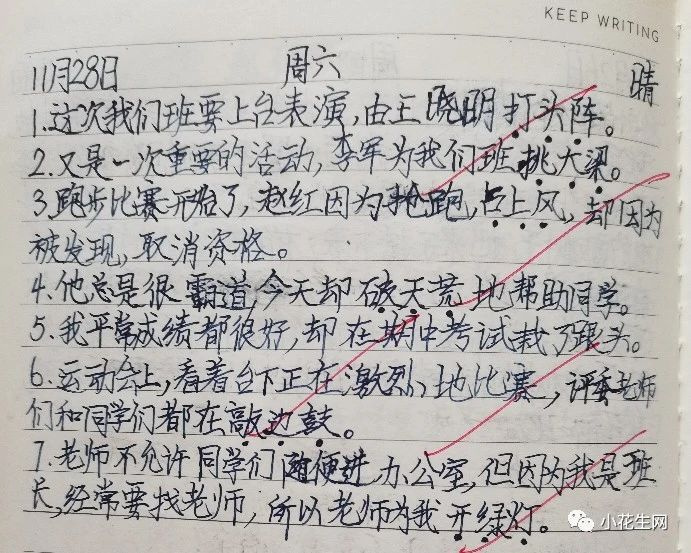 KEEP WRITING
11月28日 周六 晴
1.这次我们班要上台表演,由王晓明打头阵。
2.又是一次重要的活动,李军为我们班挑大梁。
3.跑步比赛开始了,赵红因为抢跑,占上风,却因为
被发现,取消资格。
4.他总是很霸道,今天却破天荒地帮助同学。
5.我平常成绩都很好,却在期中考试栽了跟头。
6.运动会上,看着台下正在激烈地比赛,评委老师
们和同学们都在敲边鼓。
7.老师不允许同学们随便进办公室,但因为我是班
长,经常要找老师,所以老师为我开绿灯。
小花生网